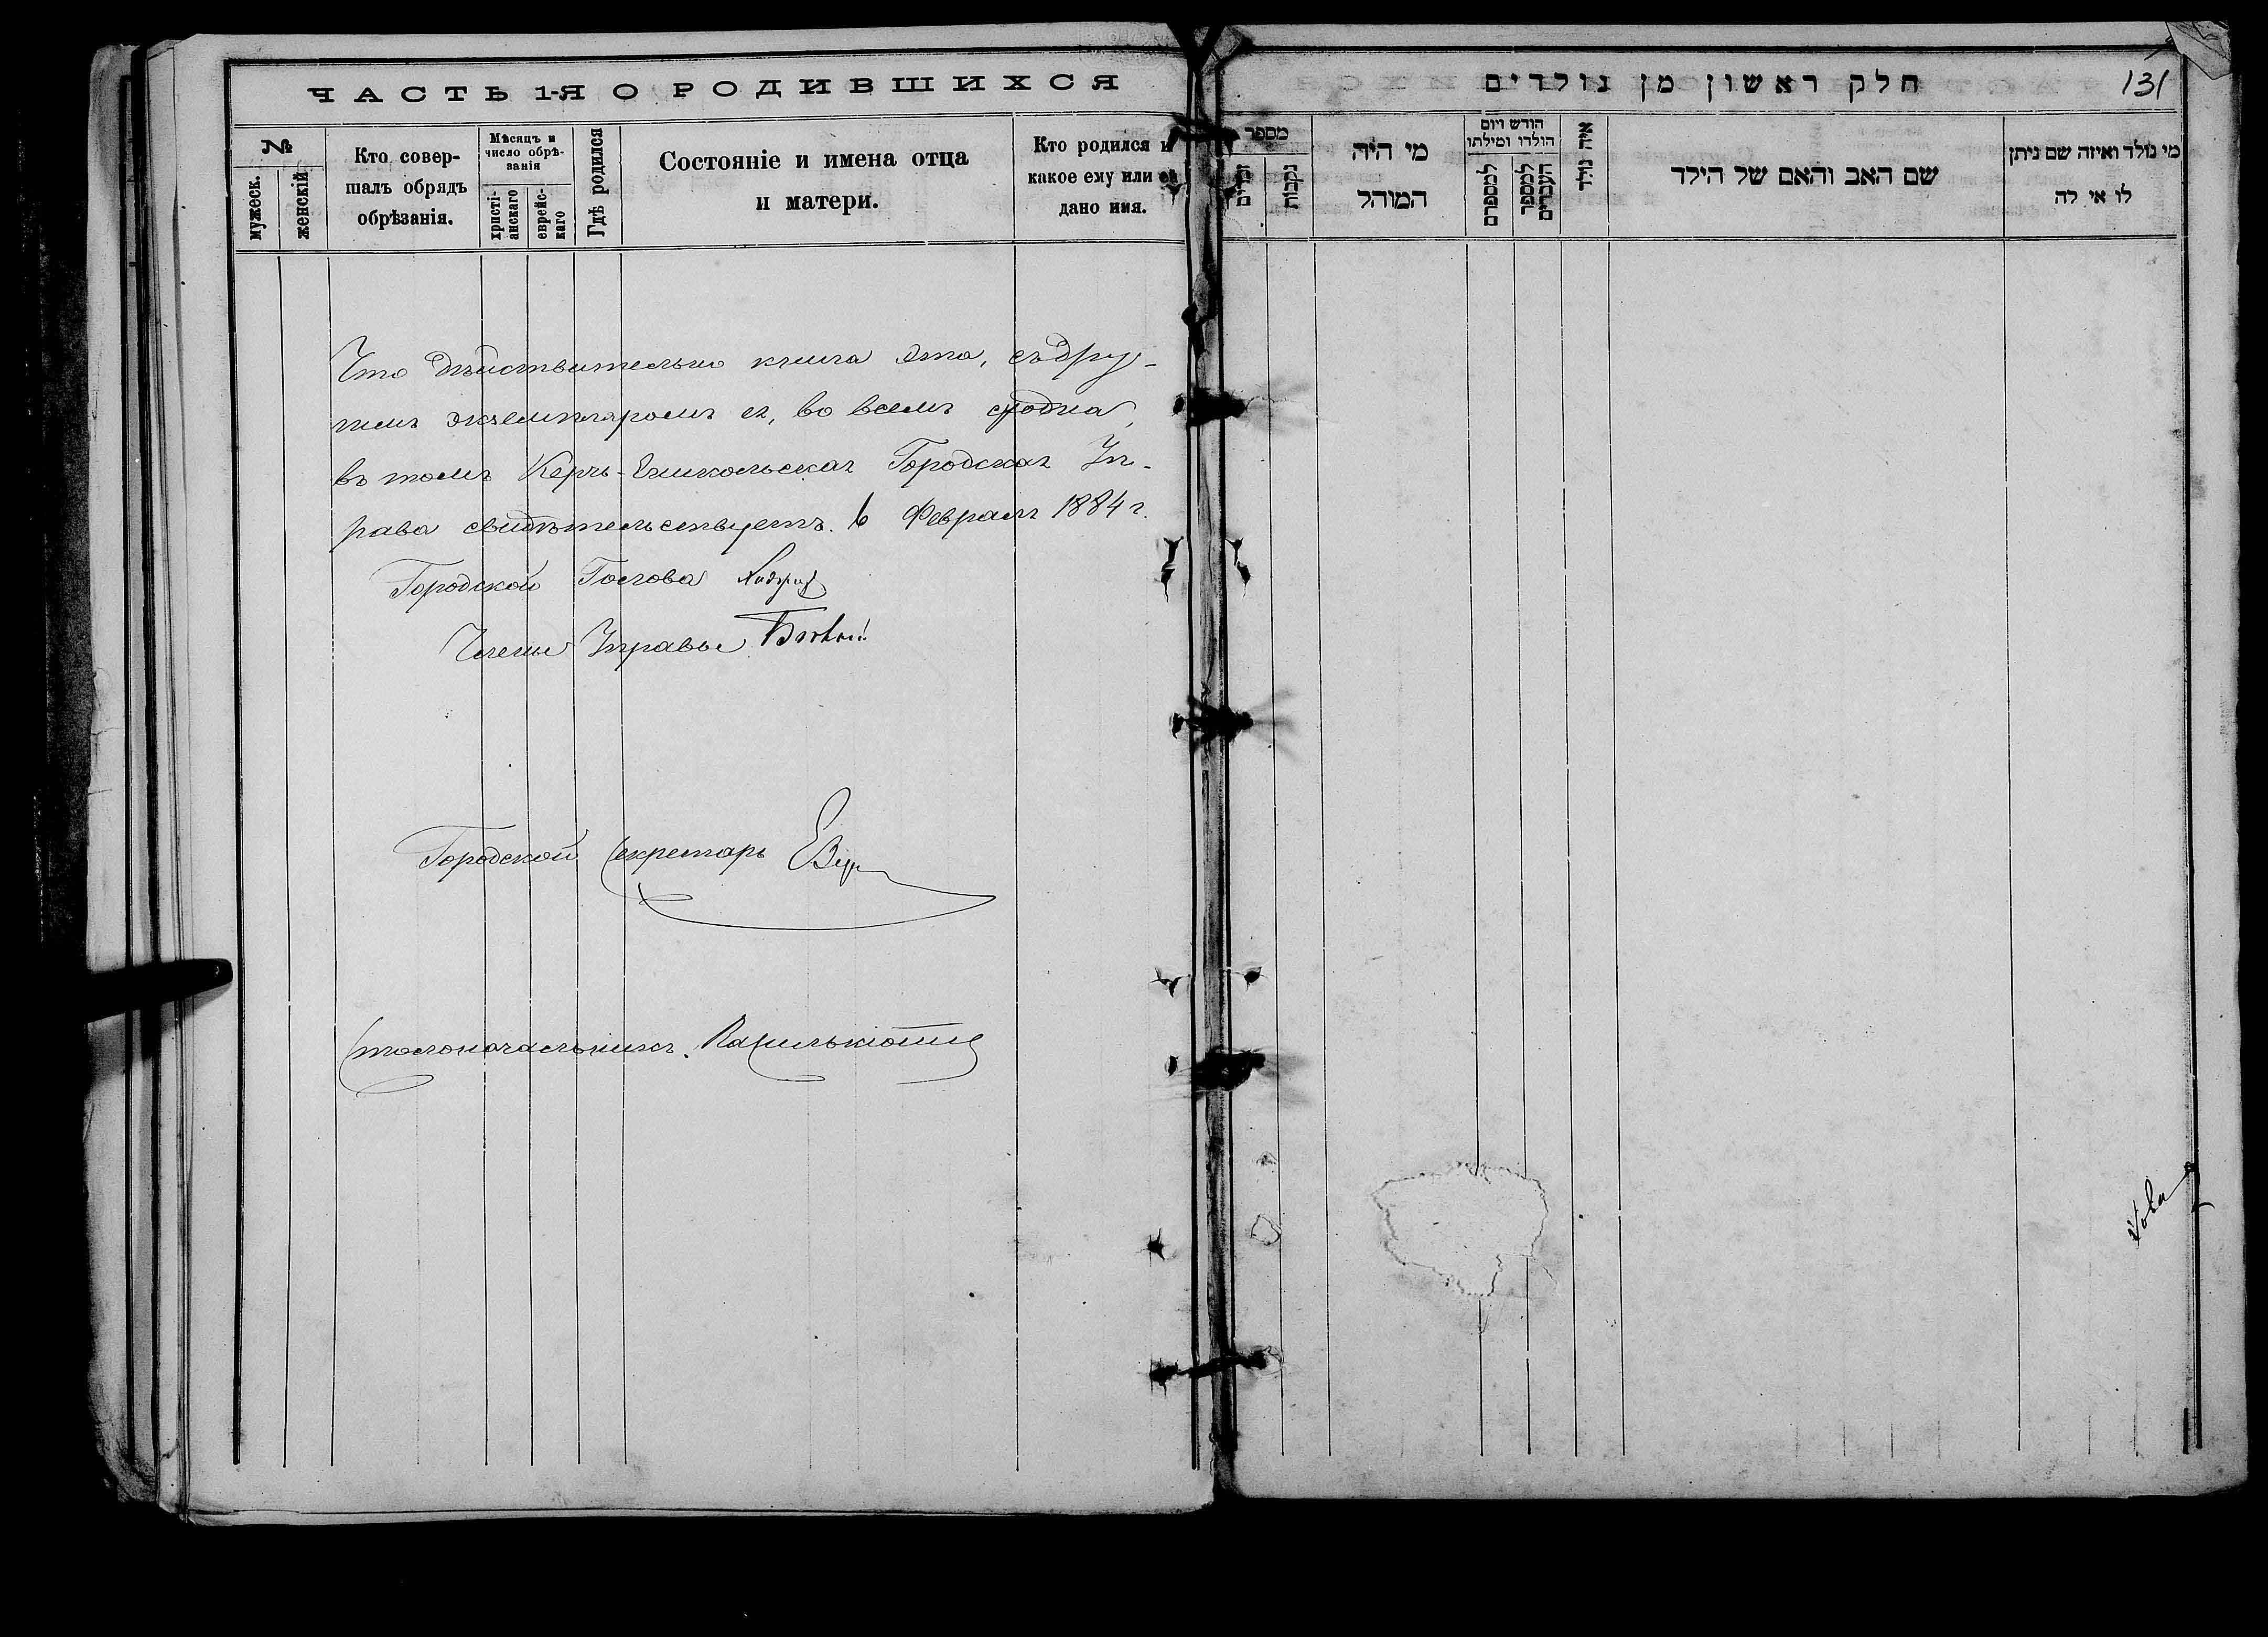 ЧАСТЬ 1-Я О РОДИВШИХСЯ
№
мужеск.
женскій
Кто совер-
шалъ обрядъ
обрѣзанія.
Мѣсяцъ и
число обрѣ-
занія
христі-
анскаго
еврейс-
каго
Гдѣ родился
Состояніе и имена отца
и матери.
Кто родился и
какое ему или ей
дано имя.
Что дѣйствительно книга эта, съ дру-
гимъ экземпляромъ ея, во всемъ сходна,
въ томъ Керчь-Еникольская Городская Уп-
рава свидѣтельствуетъ. 6 Февраля 1884 г.
Городской Голова
Члены Управы
Городской Секретарь
Столоначальникъ
חלק ראשון מן נולדים
131
מספר
זכרים
נקבות
מי היה
המוהל
הודש ויום
הולדו ומילתו
למספרם
למספר
העברים
איה נולד
שם האב והאם של הילד
מי נולד ואיזה שם ניתן
לו או לה